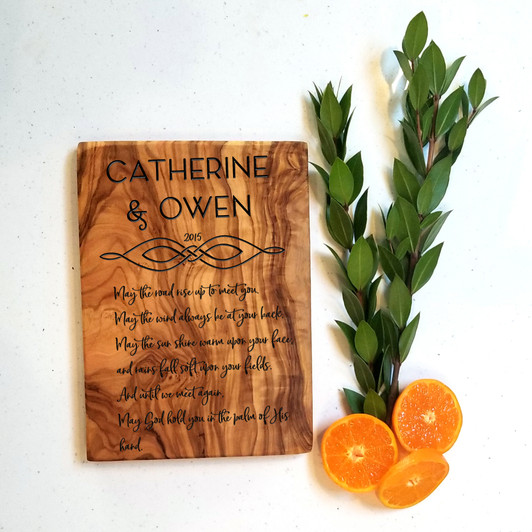 CATHERINE
& OWEN
2015
May the road rise up to meet you.
May the wind always be at your back.
May the sun shine warm upon your face,
and rains fall soft upon your fields.
And until we meet again,
May God hold you in the palm of His
hand.